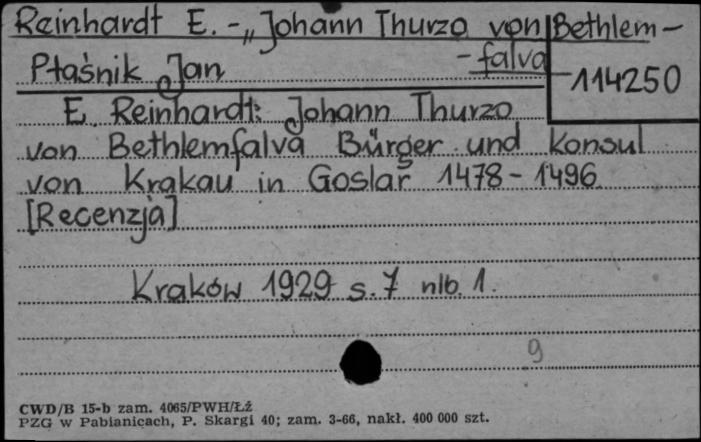 Reinhardt E. - „Johann Thurzo von Bethlem-
-falva
Ptaśnik Jan
114250
E. Reinhardt: Johann Thurzo
von Bethlemfalva Bürger und Konsul
von Krakau in Goslar 1478 - 1496
[Recenzja]
Kraków 1929 s. 7 nlb. 1.
9
CWD/B 15-b zam. 4065/PWH/Łź
PZG w Pabianicach, P. Skargi 40; zam. 3-66, nakł. 400 000 szt.